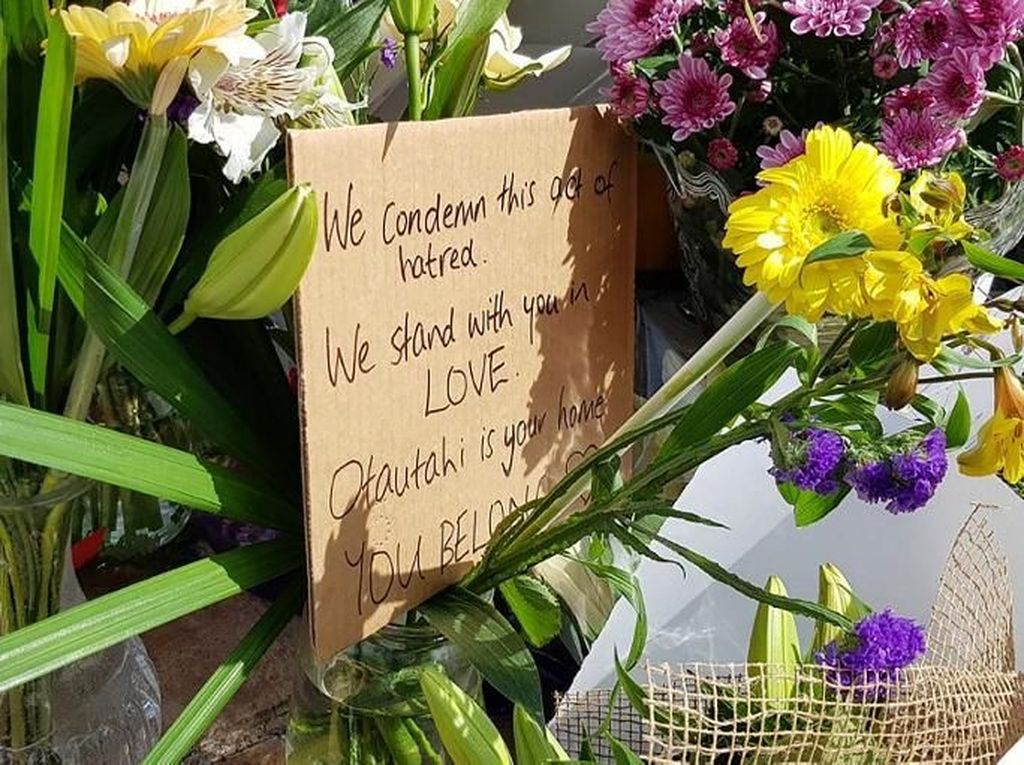 We condemn this act of
hatred.
We stand with you in
LOVE.
Otautahi is your home
YOU BELONG